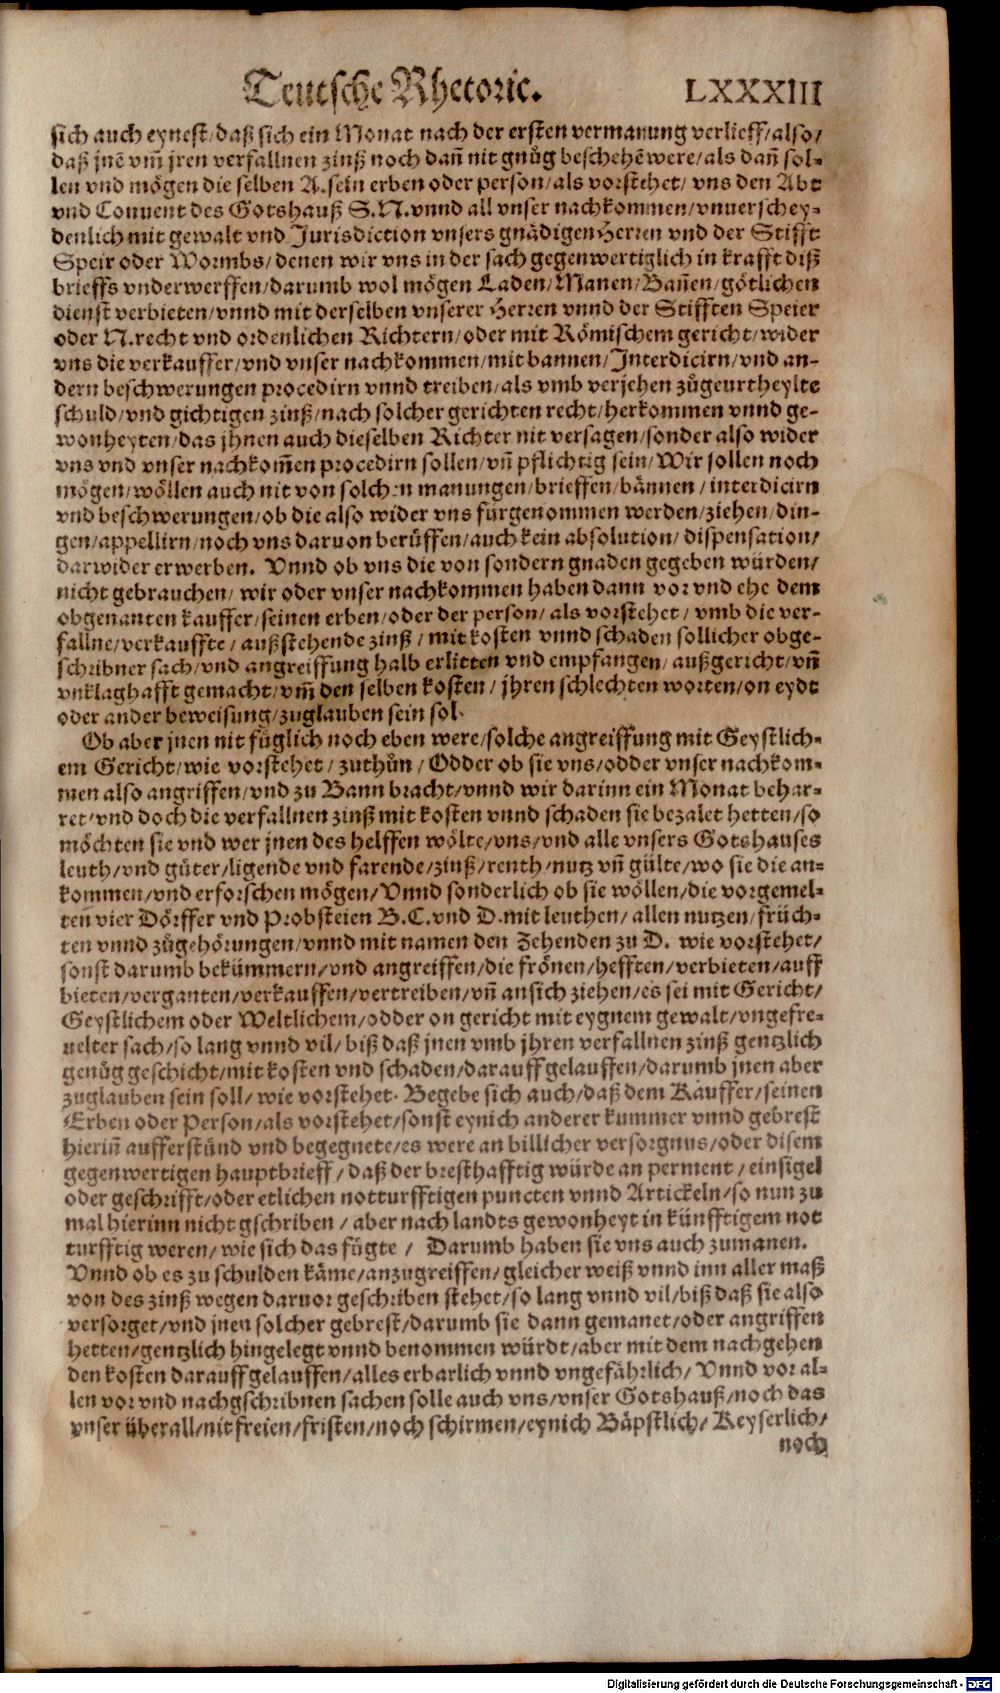 Teutsche Rhetoric. LXXXIII
sich auch eynest/daß sich ein Monat nach der ersten vermanung verlieff/also/
daß jnē vm̄ jren verfallnen zinß noch dañ nit gnůg beschehē were/als dañ sol-
len vnd mögen die selben A.sein erben oder person/als vorstehet/vns den Abt
vnd Conuent des Gotshauß S.N.vnnd all vnser nachkommen/vnuerschey-
denlich mit gewalt vnd Jurisdiction vnsers gnädigen Herren vnd der Stifft
Speir oder Wormbs/denen wir vns in der sach gegenwertiglich in krafft diß
brieffs vnderwerffen/darumb wol mögen Laden/Manen/Bañen/götlichen
dienst verbieten/vnnd mit derselben vnserer Herren vnnd der Stifften Speier
oder N.recht vnd ordenlichen Richtern/oder mit Römischem gericht/wider
vns die verkauffer/vnd vnser nachkommen/mit bannen/Interdicirn/vnd an-
dern beschwerungen procedirn vnnd treiben/als vmb verjehen zůgeurtheylte
schuld/vnd gichtigen zinß/nach solcher gerichten recht/herkommen vnnd ge-
wonheyten/das jhnen auch dieselben Richter nit versagen/sonder also wider
vns vnd vnser nachkom̄en procedirn sollen/vñ pflichtig sein/Wir sollen noch
mögen/wöllen auch nit von solchen manungen/brieffen/bännen/interdicirn
vnd beschwerungen/ob die also wider vns fürgenommen werden/ziehen/din-
gen/appellirn/noch vns daruon berůffen/auch kein absolution/dispensation/
darwider erwerben. Vnnd ob vns die von sondern gnaden gegeben würden/
nicht gebrauchen/wir oder vnser nachkommen haben dann vor vnd ehe dem
obgenanten kauffer/seinen erben/oder der person/als vorstehet/vmb die ver-
fallne/verkauffte/außstehende zinß/mit kosten vnnd schaden sollicher obge-
schribner sach/vnd angreiffung halb erlitten vnd empfangen/außgericht/vñ
vnklaghafft gemacht/vm̄ den selben kosten/jhren schlechten worten/on eydt
oder ander beweisung/zuglauben sein sol.
Ob aber jnen nit füglich noch eben were/solche angreiffung mit Geystlich-
em Gericht/wie vorstehet/zuthůn/Odder ob sie vns/odder vnser nachkom-
men also angriffen/vnd zu Bann bracht/vnnd wir darinn ein Monat behar-
ret/vnd doch die verfallnen zinß mit kosten vnnd schaden sie bezalet hetten/so
möchten sie vnd wer jnen des helffen wölte/vns/vnd alle vnsers Gotshauses
leuth/vnd güter/ligende vnd farende/zinß/renth/nutz vñ gülte/wo sie die an-
kommen/vnd erforschen mögen/Vnnd sonderlich ob sie wöllen/die vorgemel-
ten vier Dörffer vnd Probsteien B.C.vnd D.mit leuthen/allen nutzen/früch-
ten vnnd zůgehörungen/vnnd mit namen den Zehenden zu D. wie vorstehet/
sonst darumb bekümmern/vnd angreiffen/die frönen/hefften/verbieten/auff
bieten/verganten/verkauffen/vertreiben/vñ an sich ziehen/es sei mit Gericht/
Geystlichem oder Weltlichem/odder on gericht mit eygnem gewalt/vngefre-
uelter sach/so lang vnnd vil/biß daß jnen vmb jhren verfallnen zinß gentzlich
genůg geschicht/mit kosten vnd schaden/darauff gelauffen/darumb jnen aber
zuglauben sein soll/wie vorstehet. Begebe sich auch/daß dem Käuffer/seinen
Erben oder Person/als vorstehet/sonst eynich anderer kummer vnnd gebrest
hieriñ aufferstünd vnd begegnete/es were an billicher versorgnus/oder disem
gegenwertigen hauptbrieff/daß der bresthafftig würde an perment/einsigel
oder geschrifft/oder etlichen notturfftigen puncten vnnd Artickeln/so nun zu
mal hierinn nicht gschriben/aber nach landts gewonheyt in künfftigem not
turfftig weren/wie sich das fügte/ Darumb haben sie vns auch zumanen.
Vnnd ob es zu schulden käme/anzugreiffen/gleicher weiß vnnd inn aller maß
von des zinß wegen daruor geschriben stehet/so lang vnnd vil/biß daß sie also
versorget/vnd jnen solcher gebrest/darumb sie dann gemanet/oder angriffen
hetten/gentzlich hingelegt vnnd benommen würdt/aber mit dem nachgehen
den kosten darauff gelauffen/alles erbarlich vnnd vngefährlich/Vnnd vor al-
len vor vnd nachgschribnen sachen solle auch vns/vnser Gotshauß/noch das
vnser überall/nit freien/fristen/noch schirmen/eynich Bäpstlich/Keyserlich/
noch
Digitalisierung gefördert durch die Deutsche Forschungsgemeinschaft - DFG